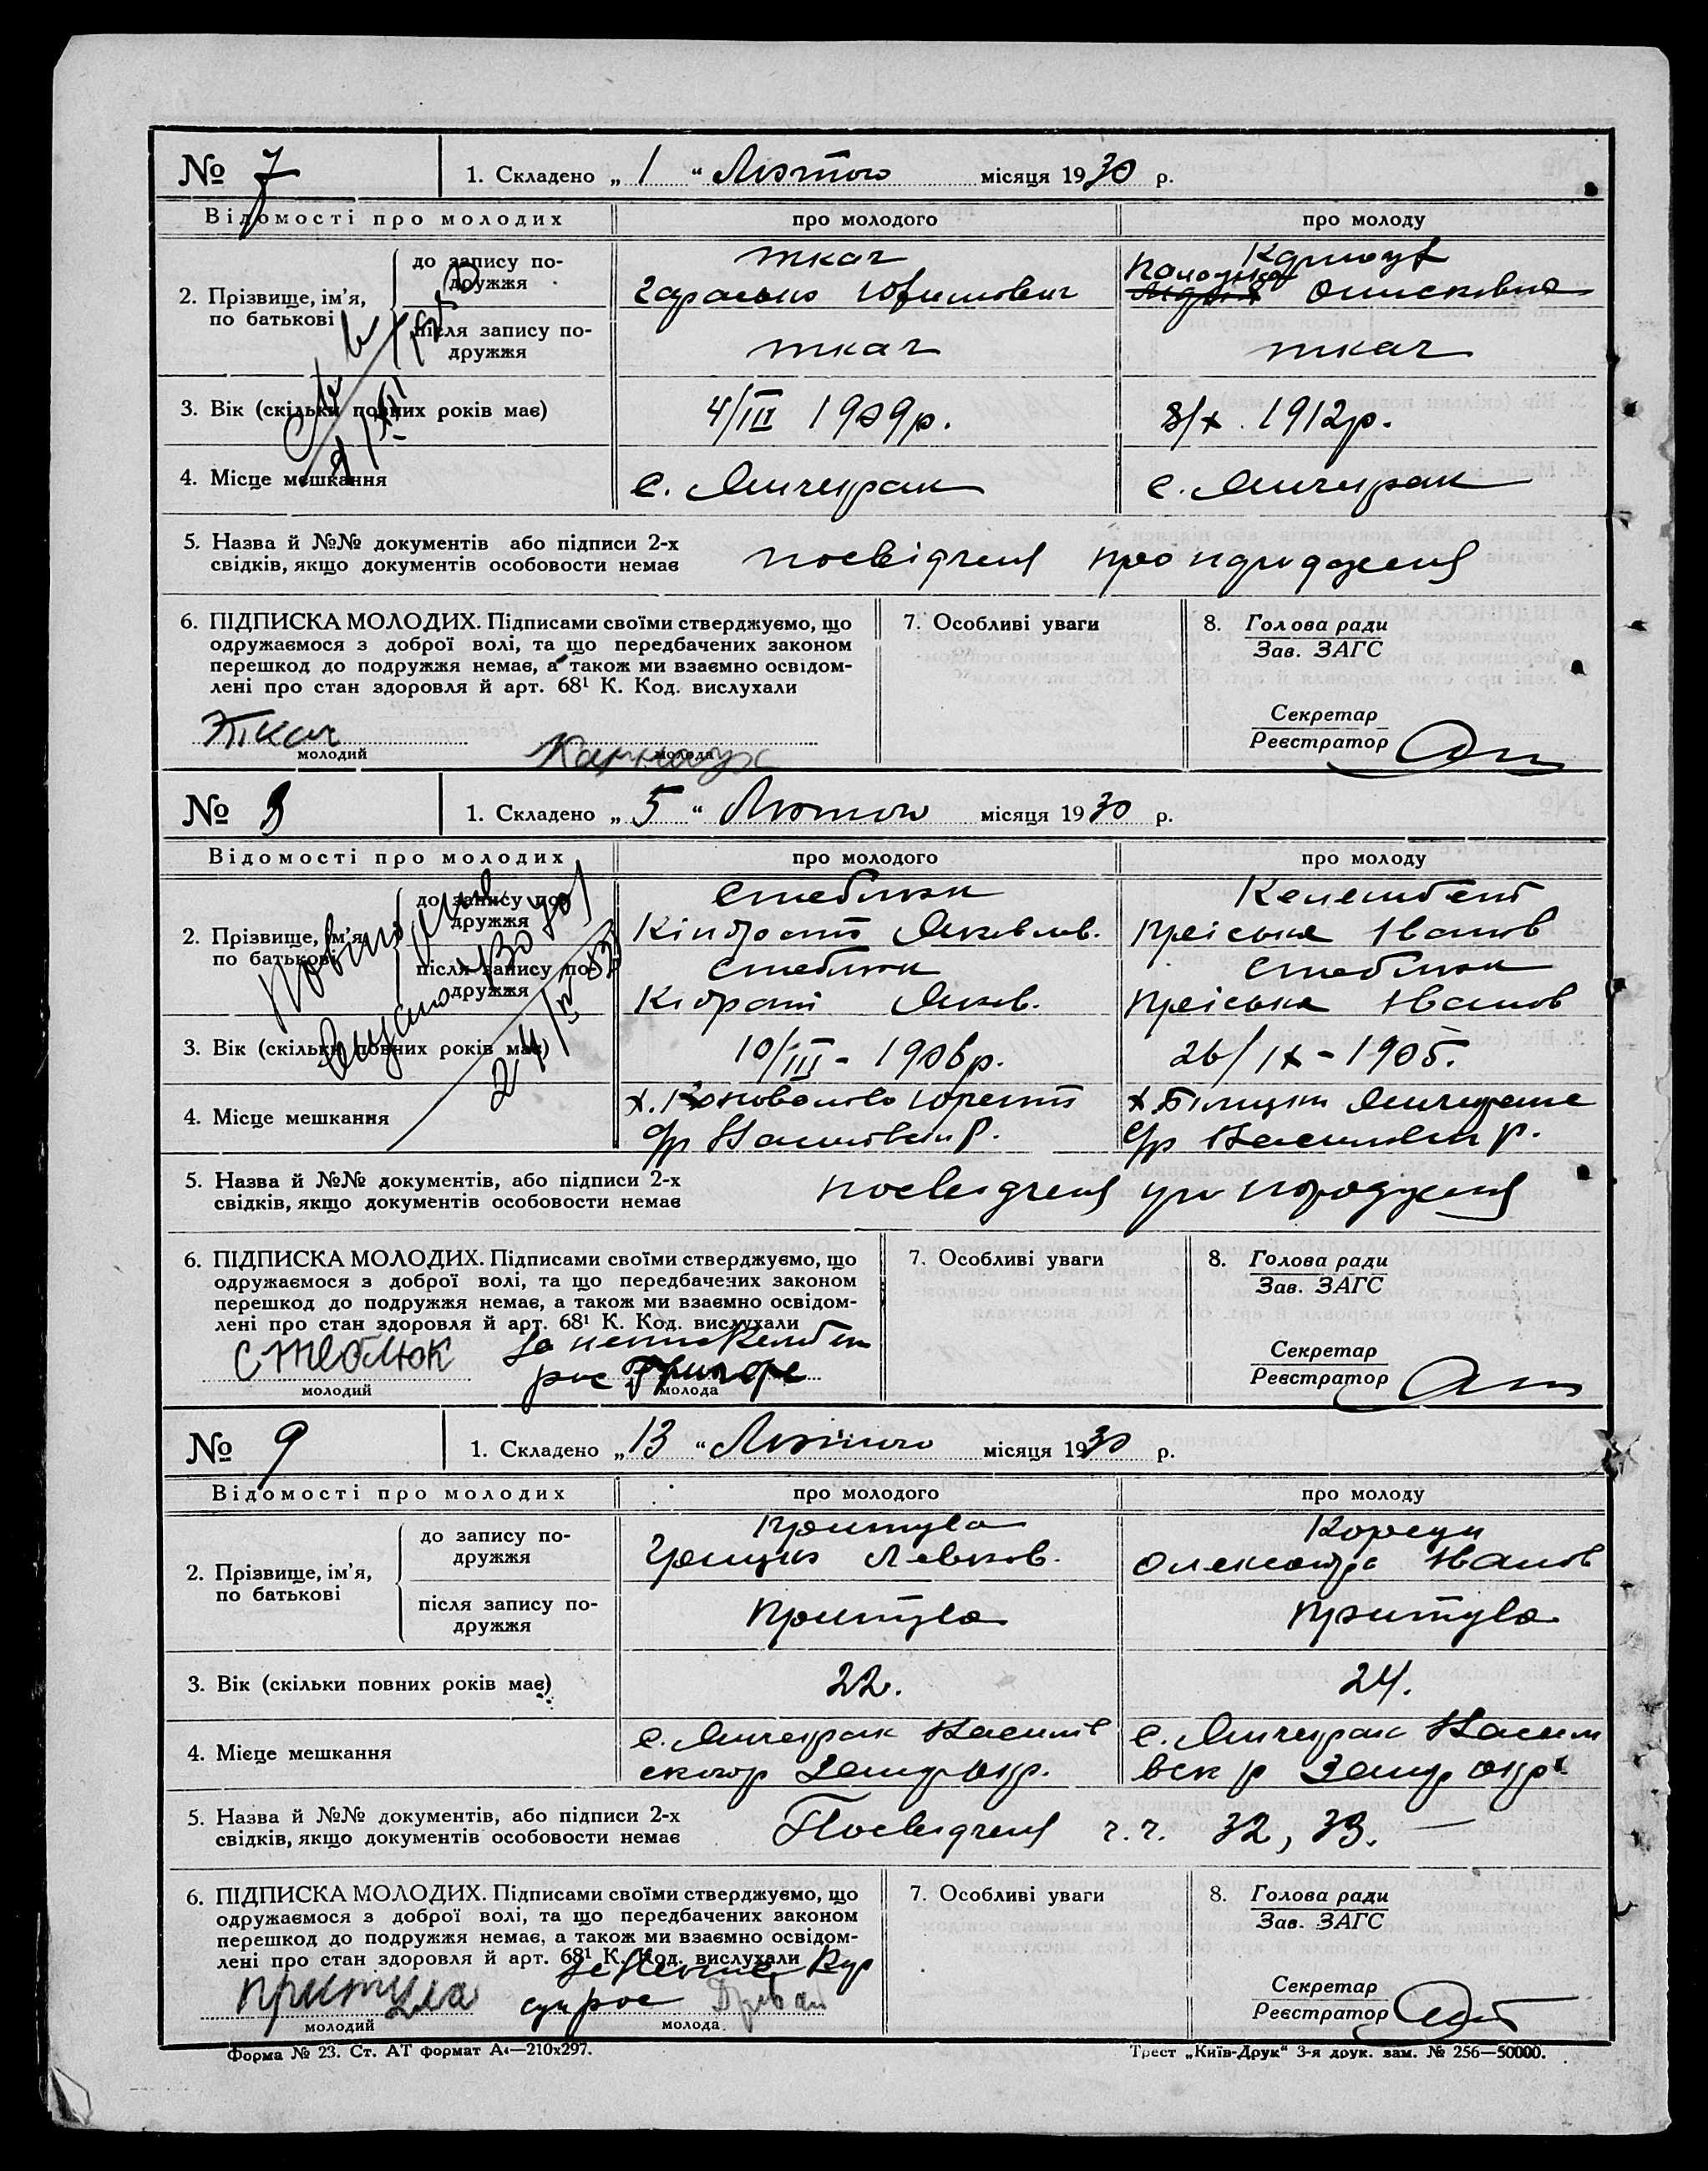 № 7
1. Складено „ 1 “ Лютого місяця 1930 р.
Відомості про молодих
про молодого
про молоду
2. Прізвище, ім’я, по батькові
до запису по-
дружжя
Ткач
Гарасько Юхимович
Карнаух
Онисковна
після запису по-
дружжя
Ткач
Ткач
3. Вік (скільки повних років має)
4/III 1909р.
8/X . 1912р.
4. Місце мешкання
с. Янчекрак
с. Янчекрак
5. Назва й №№ документів або підписи 2-х
свідків, якщо документів особовости немає
посвідченя про народженя
6. ПІДПИСКА МОЛОДИХ. Підписами своїми стверджуємо, що
одружаємося з доброї волі, та що передбачених законом
перешкод до подружжя немає, а також ми взаємно освідом-
лені про стан здоровля й арт. 68¹ К. Код. вислухали
Ткач
молодий
Карнаух
молода
7. Особливі уваги
8. Голова ради
Зав. ЗАГС
Секретар
Реєстратор
№ 8
1. Складено „ 5 “ Лютого місяця 1930 р.
Відомості про молодих
про молодого
про молоду
2. Прізвище, ім’я,
по батькові
до запису по-
дружжя
Стеблюк
Кіндрат Яковлев.
Келембет
Пріська Іванов
після запису по-
дружжя
Стеблюк
Кідрат Яков.
Стеблюк
Пріська Іванов
3. Вік (скільки повних років має)
10/III - 1906р.
26/IX - 1905.
4. Місце мешкання
с/р Василівськ р.
с/р Василівськ р.
5. Назва й №№ документів, або підписи 2-х
свідків, якщо документів особовости немає
посвідченя про народженя
6. ПІДПИСКА МОЛОДИХ. Підписами своїми стверджуємо, що
одружаємося з доброї волі, та що передбачених законом
перешкод до подружжя немає, а також ми взаємно освідом-
лені про стан здоровля й арт. 68¹ К. Код. вислухали
Стеблюк
молодий
молода
7. Особливі уваги
8. Голова ради
Зав. ЗАГС
Секретар
Реєстратор
№ 9
1. Складено „ 13 “ Лютого місяця 1930 р.
Відомості про молодих
про молодого
про молоду
2. Прізвище, ім’я,
по батькові
до запису по-
дружжя
Притула
Грицко Левков.
Корсун
Олександра Іванов
після запису по-
дружжя
Притула
Притула
3. Вік (скільки повних років має)
22.
24.
4. Місце мешкання
с. Янчекрак Василів
ског р Запор окр.
с. Янчекрак Васили
вск р Запор окр.
5. Назва й №№ документів, або підписи 2-х
свідків, якщо документів особовости немає
Посвідченя ч.ч. 32, 33.
6. ПІДПИСКА МОЛОДИХ. Підписами своїми стверджуємо, що
одружаємося з доброї волі, та що передбачених законом
перешкод до подружжя немає, а також ми взаємно освідом-
лені про стан здоровля й арт. 68¹ К. Код. вислухали
Притула
молодий
молода
7. Особливі уваги
8. Голова ради
Зав. ЗАГС
Секретар
Реєстратор
Форма № 23. Ст. АТ формат А4—210x297.
Трест „Київ-Друк“ 3-я друк. зам. № 256—50000.